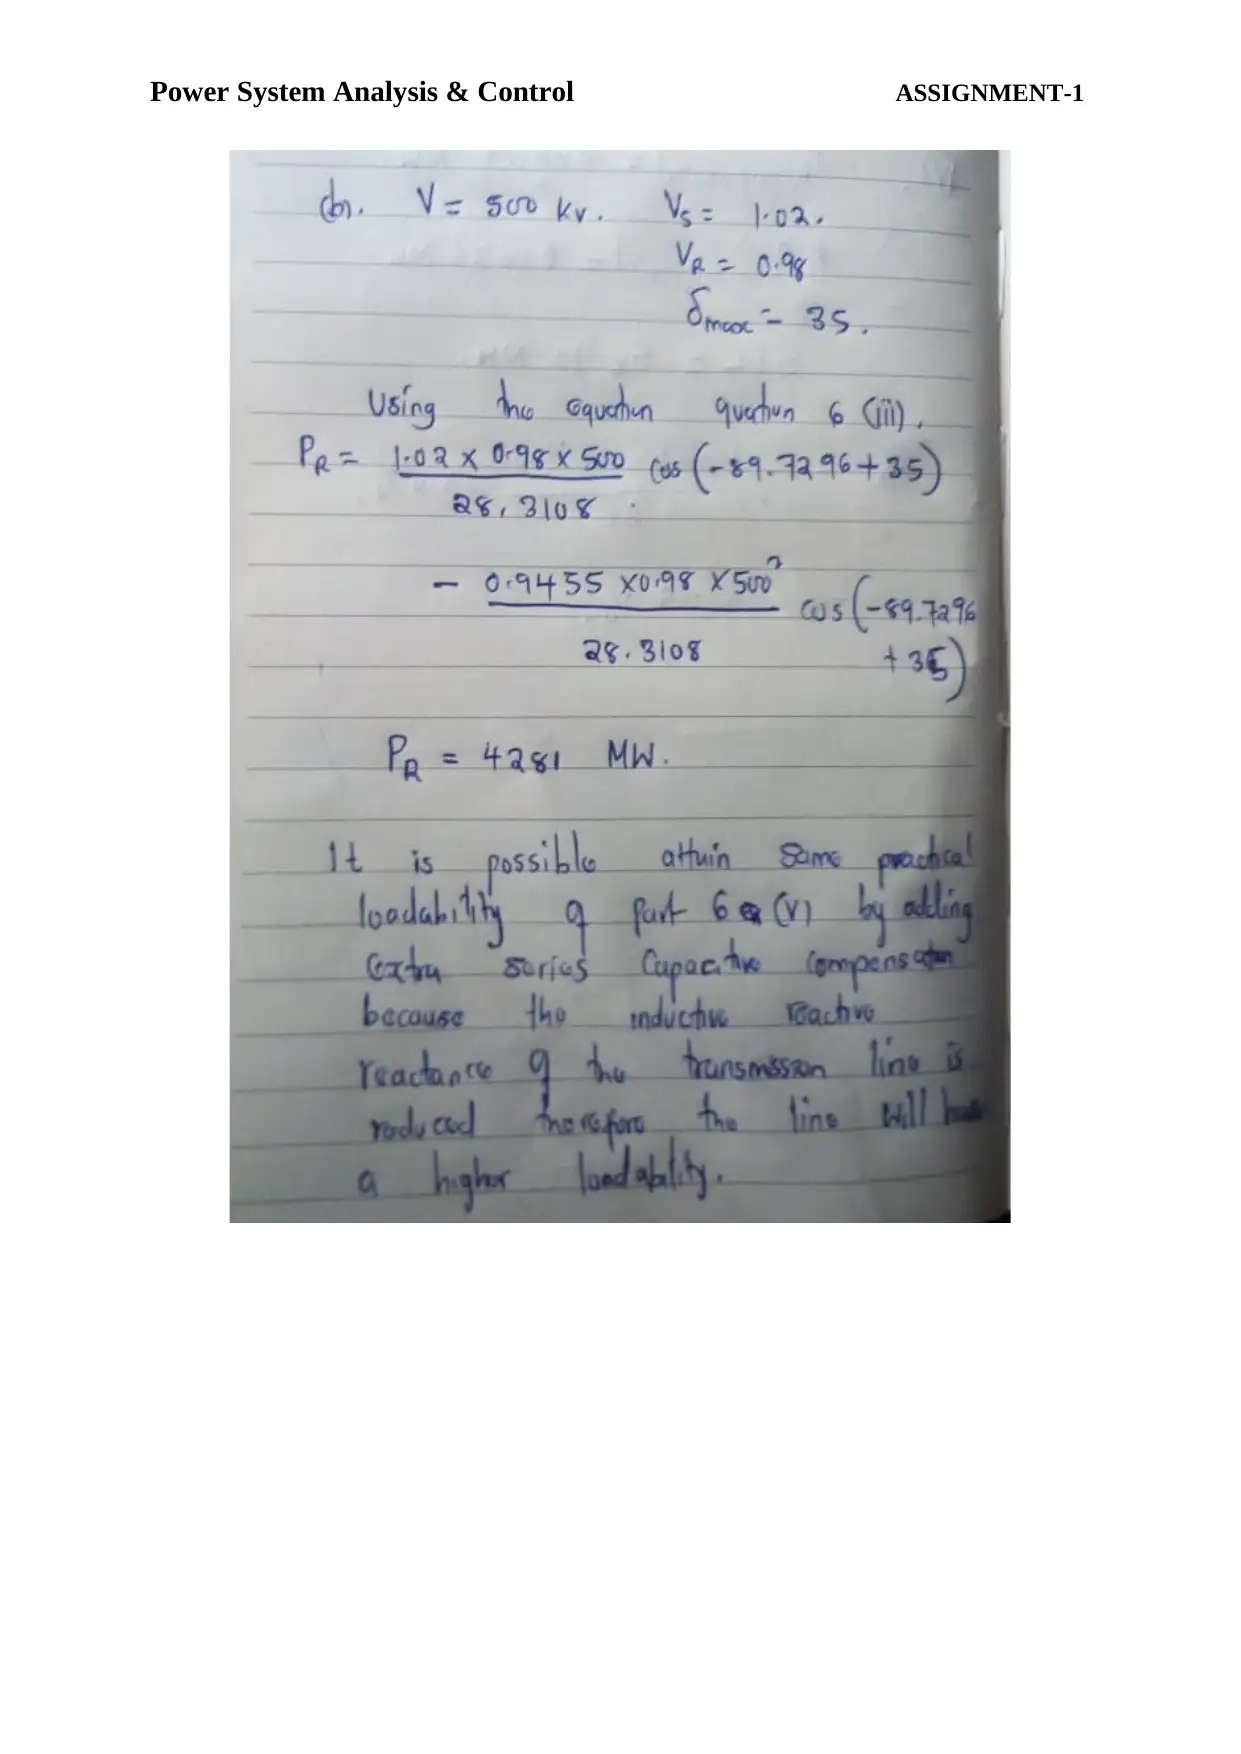 Power System Analysis & Control ASSIGNMENT-1
(b). V = 500 kv. Vs = 1.02.
VR = 0.98
δmax = 35.
Using the equation quation 6 (iii).
PR = 1.02 x 0.98 x 500 cos (-89.7296 + 35)
28.3108
- 0.9455 x 0.98 x 500² cos (-89.7296
28.3108 + 35)
PR = 4281 MW.
It is possible attain same practical
loadability of part 6 (v) by adding
extra series Capacitive compensation
because the inductive reactive
reactance of the transmission line is
reduced therefore the line will have
a higher loadability.